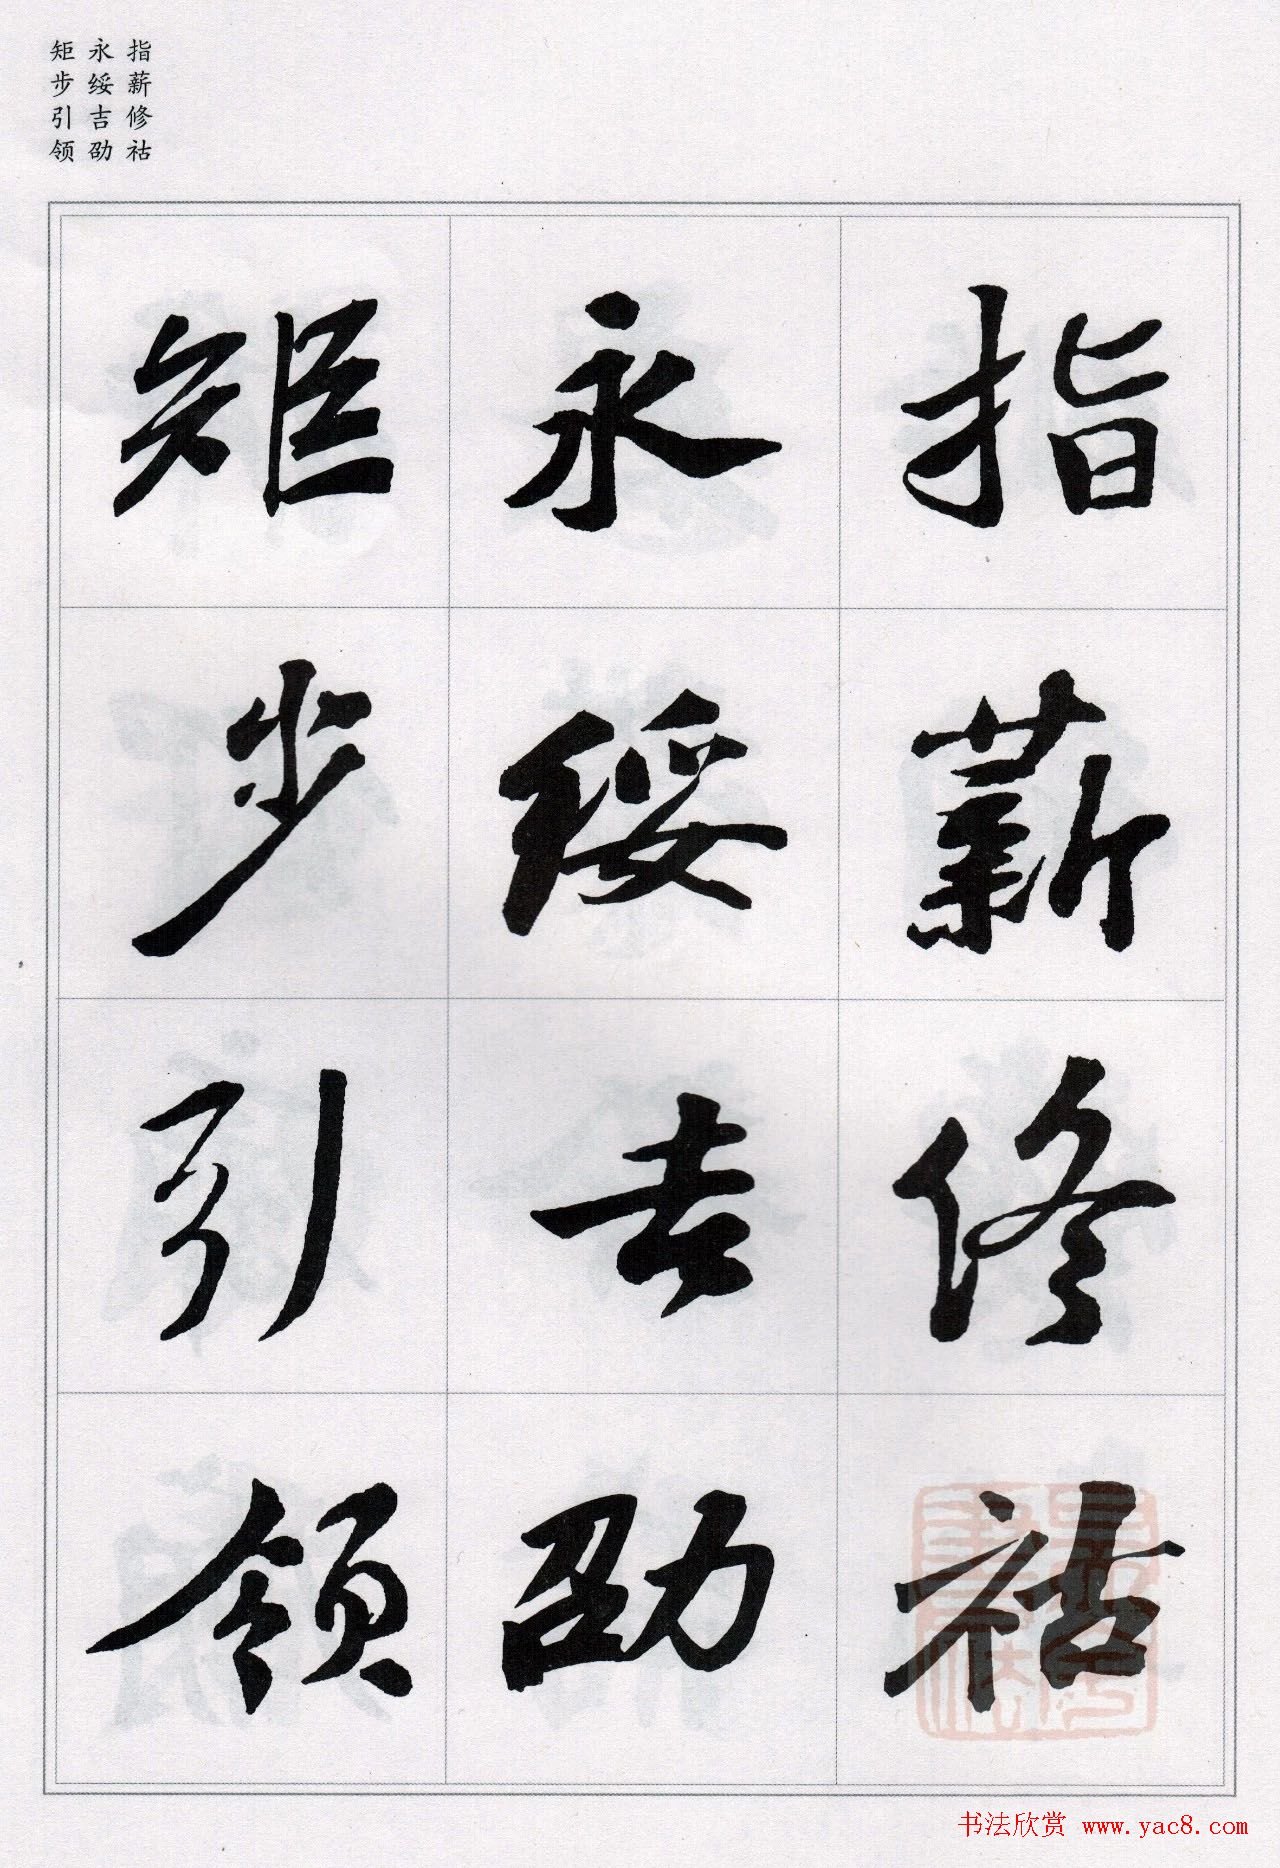 指薪修祜
永绥吉劭
矩步引领
指薪修祜
永绥吉劭
矩步引领
书法欣赏 www.yac8.com